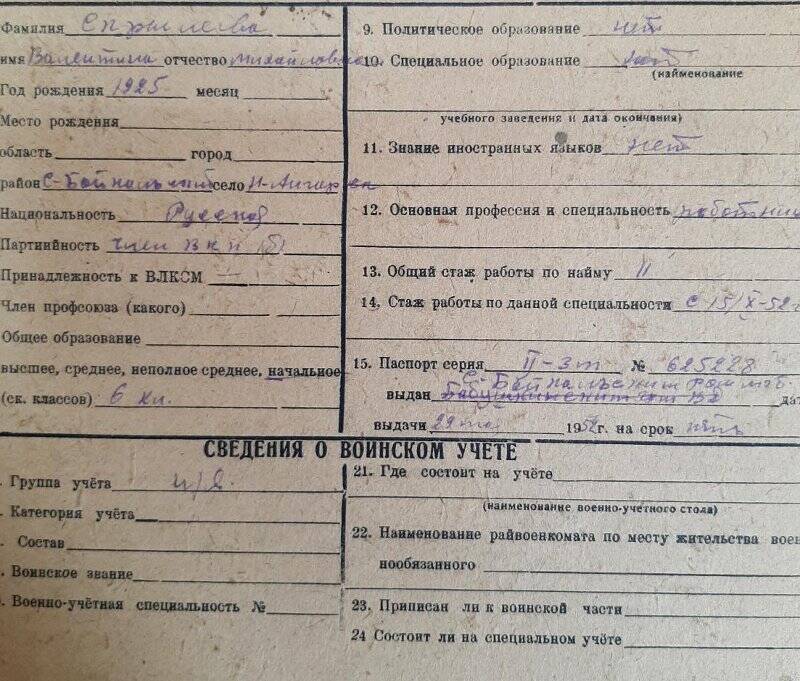 Фамилия
имя Валентина отчество Михайловна
Год рождения 1925 месяц
Место рождения
область город
район С-Байкальский село Н-Ангарск
Национальность Русская
Партийность член ВКП(б)
Принадлежность к ВЛКСМ —
Член профсоюза (какого)
Общее образование
высшее, среднее, неполное среднее, начальное
(ск. классов) 6 кл.
9. Политическое образование нет
10. Специальное образование нет
(наименование
учебного заведения и дата окончания)
11. Знание иностранных языков нет
12. Основная профессия и специальность
13. Общий стаж работы по найму
14. Стаж работы по данной специальности с 15/X-52
15. Паспорт серия № 625228
С-Байкальским
выдан дат
выдачи 29 мая 1952г. на срок
СВЕДЕНИЯ О ВОИНСКОМ УЧЕТЕ
Группа учёта
Категория учёта
Состав
Воинское звание
Военно-учётная специальность №
21. Где состоит на учёте
(наименование военно-учетного стола)
22. Наименование райвоенкомата по месту жительства воен
нообязанного
23. Приписан ли к воинской части
24 Состоит ли на специальном учёте